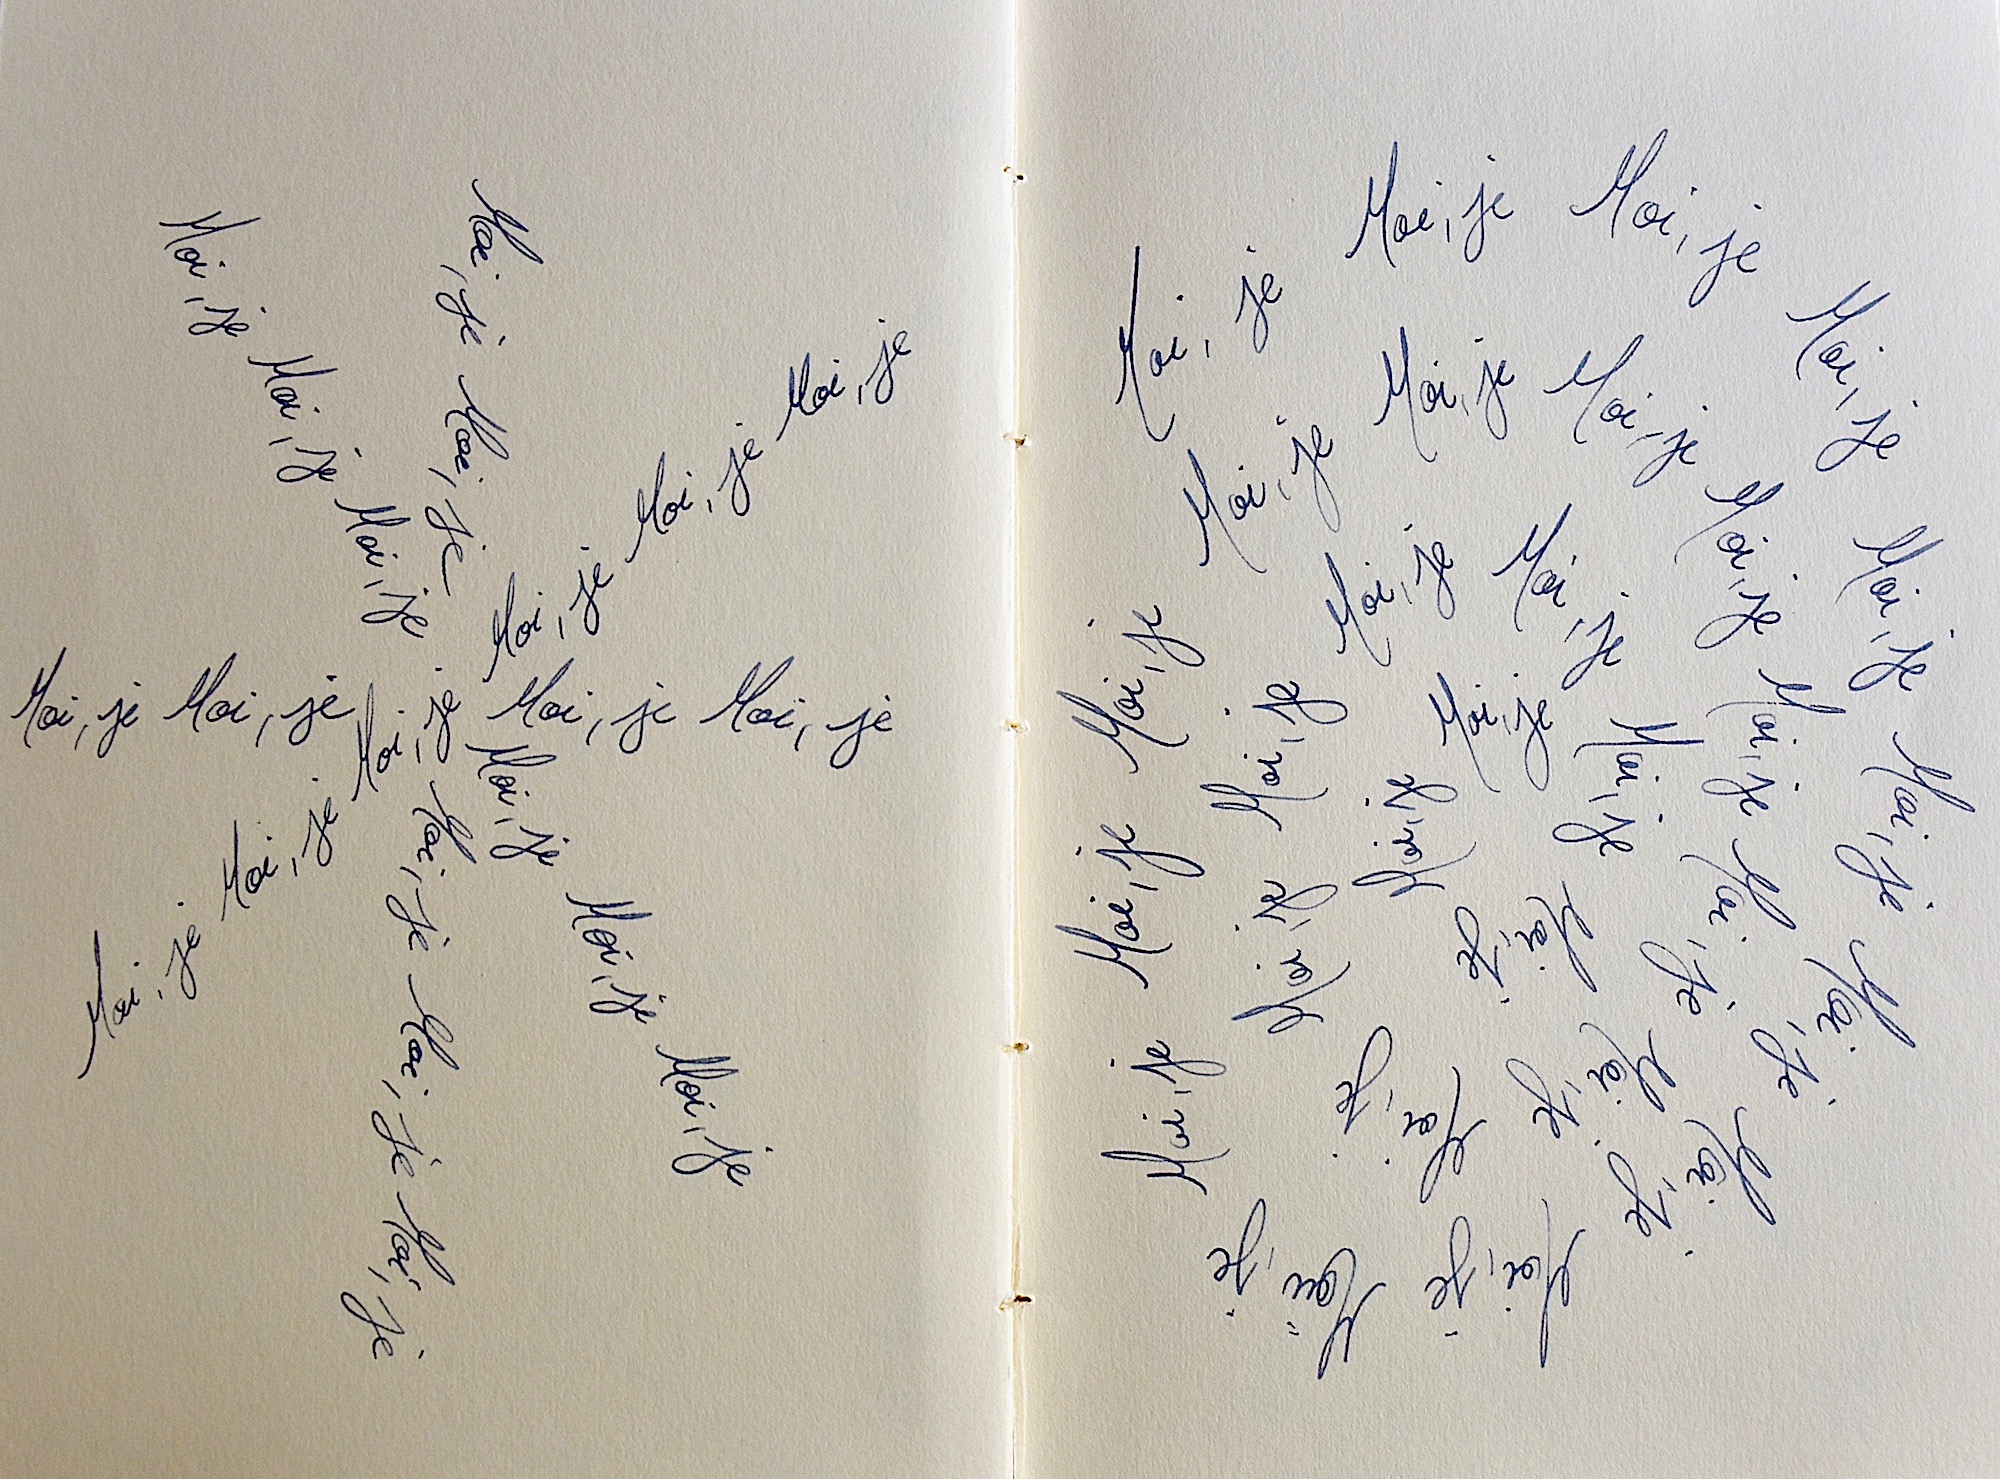 Moi, je Moi, je Moi, je Moi, je Moi, je Moi, je
Moi, je Moi, je Moi, je Moi, je Moi, je
Moi, je Moi, je Moi, je Moi, je Moi, je Moi, je
Moi, je Moi, je Moi, je Moi, je
Moi, je Moi, je Moi, je Moi, je Moi, je Moi, je Moi, je Moi, je Moi, je Moi, je Moi, je Moi, je Moi, je
Moi, je Moi, je Moi, je Moi, je Moi, je Moi, je Moi, je Moi, je Moi, je Moi, je
Moi, je Moi, je Moi, je Moi, je Moi, je Moi, je